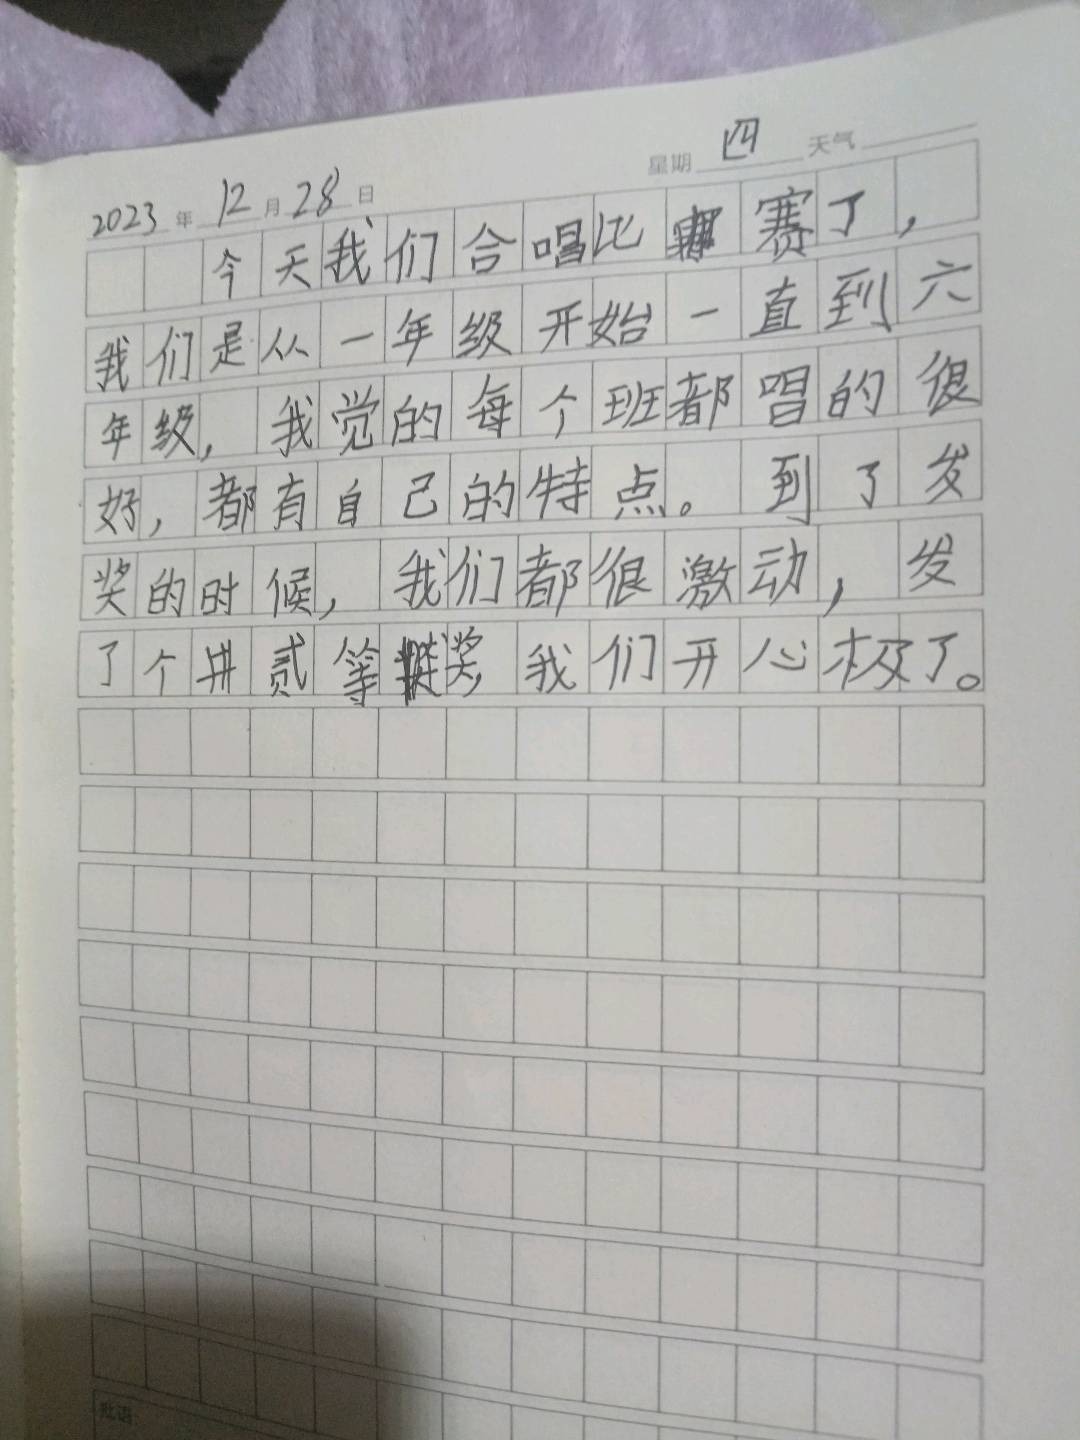 2023年12月28日 星期四 天气
今天我们合唱比赛了，
我们是从一年级开始一直到六
年级，我觉的每个班都唱的很
好，都有自己的特点。到了发
奖的时候，我们都很激动，发
了个贰等奖，我们开心极了。
批语：